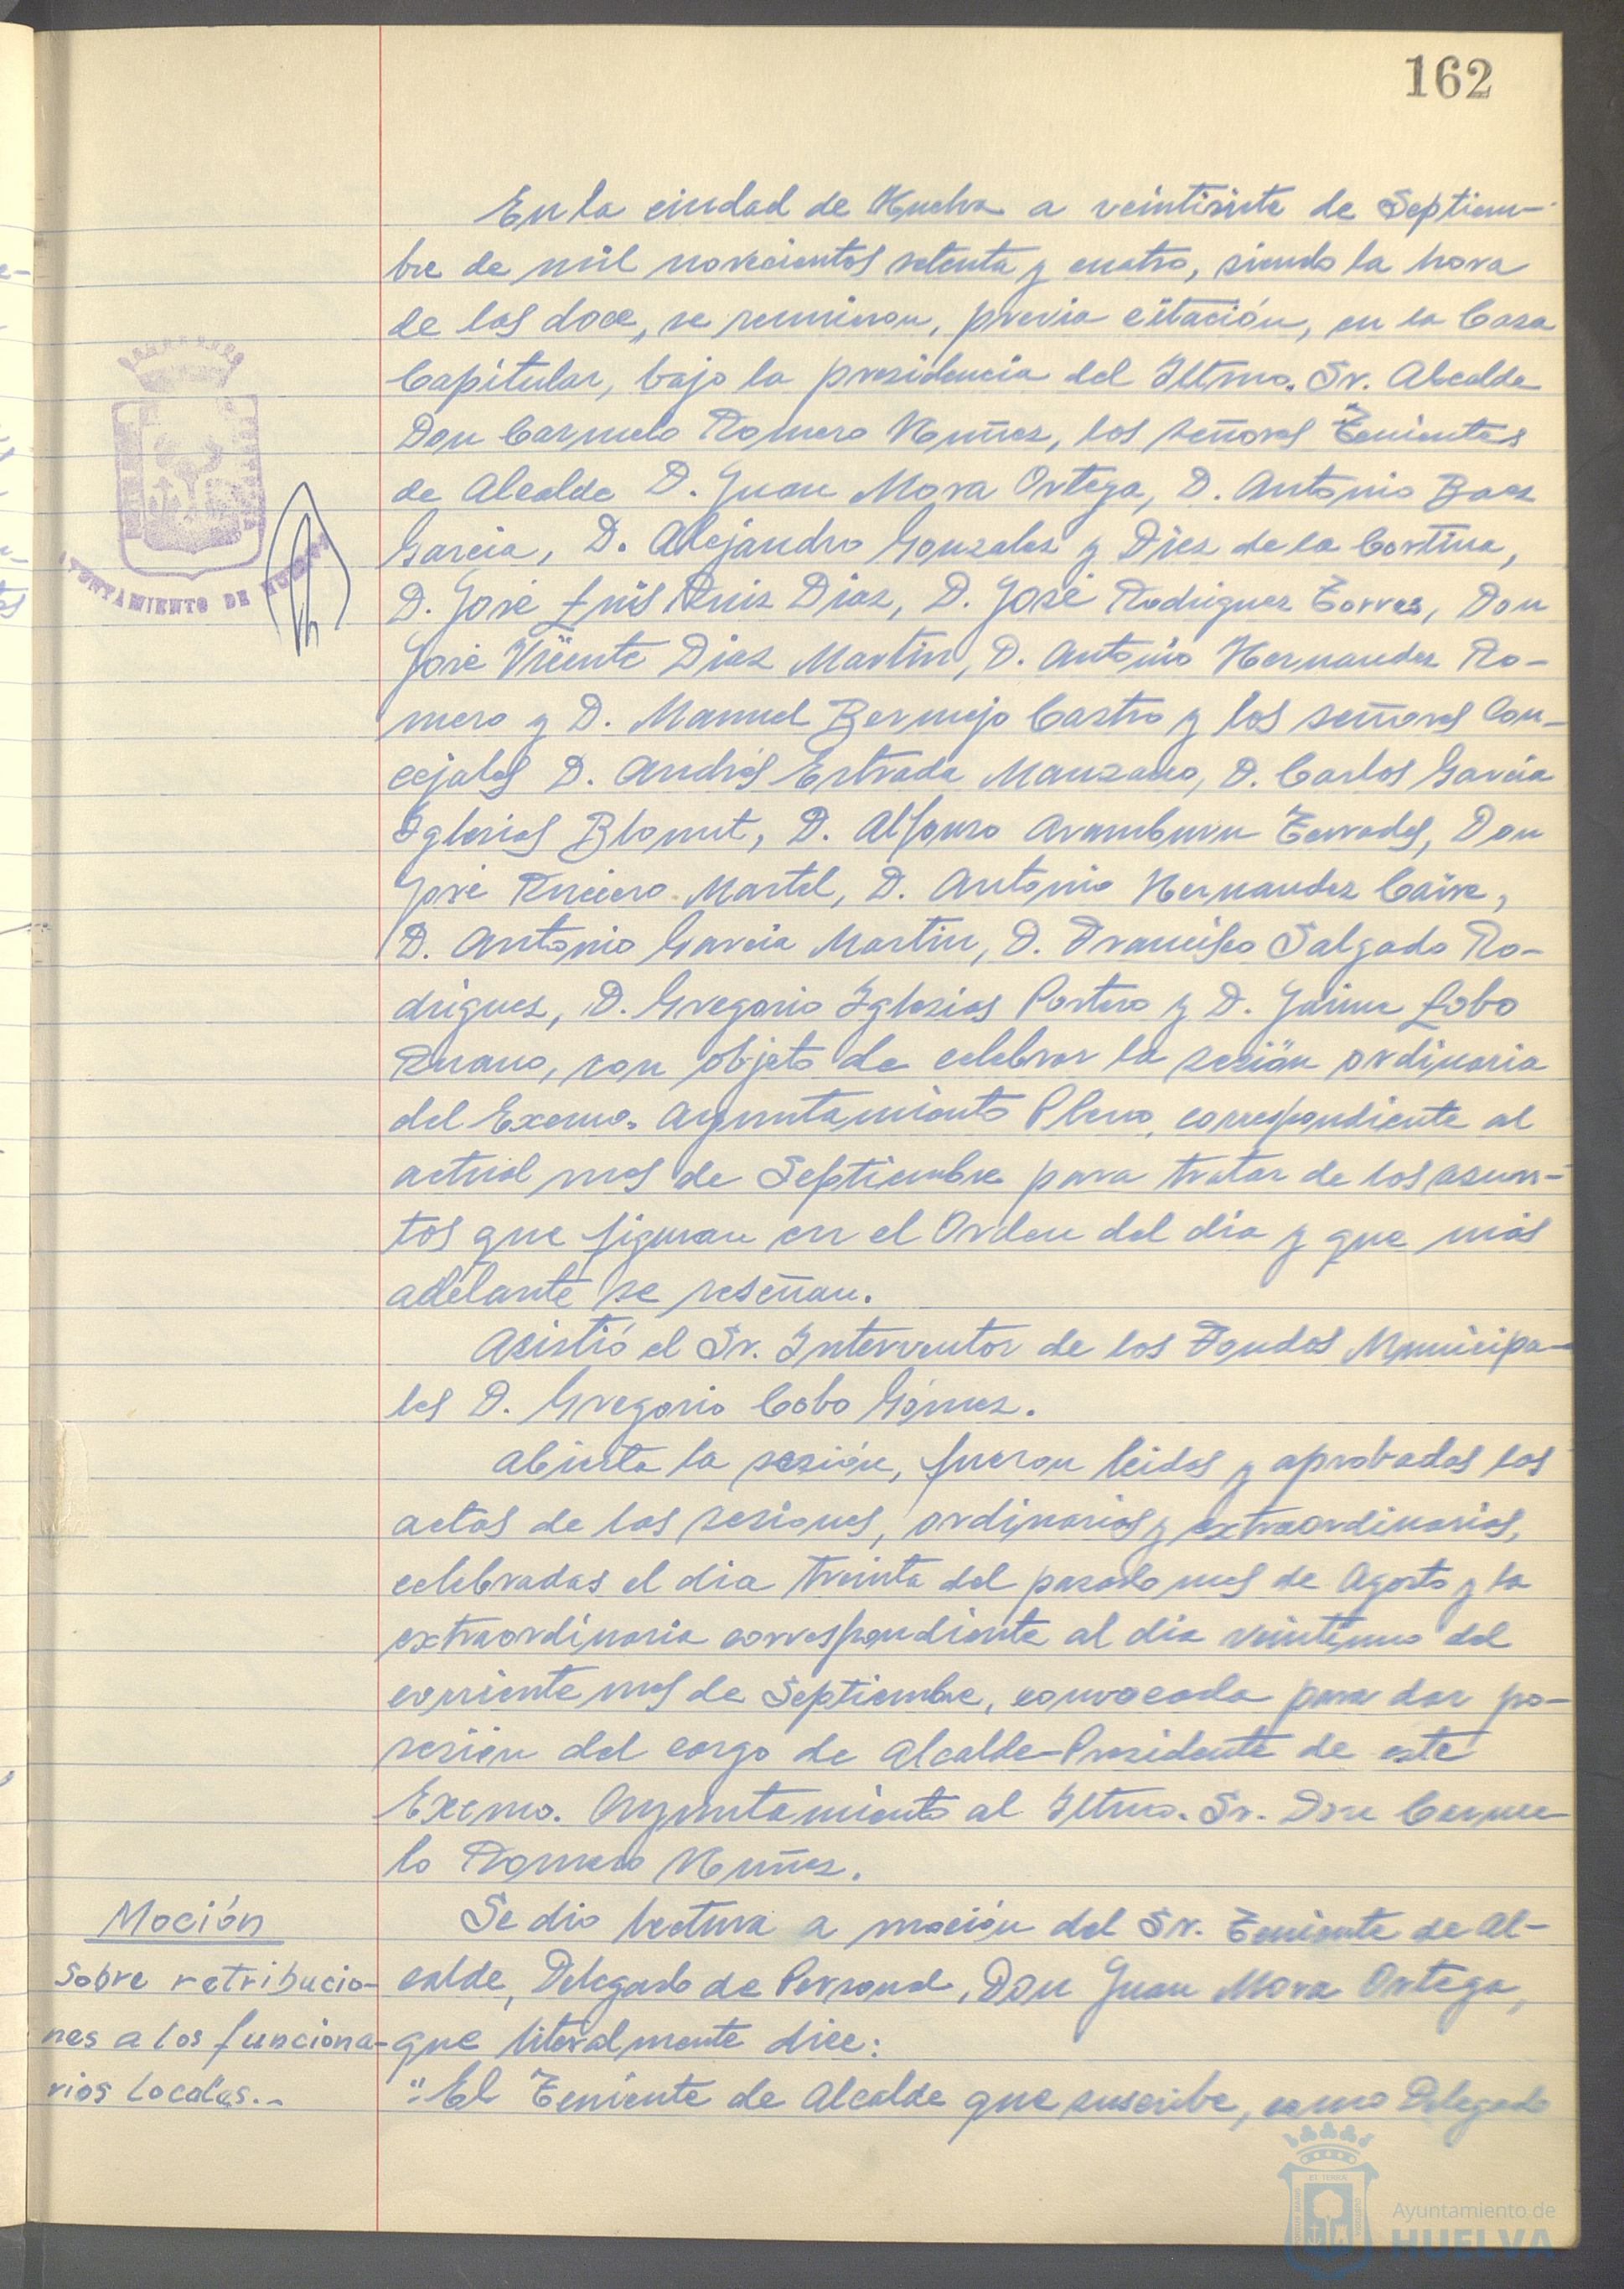 162
En la ciudad de Huelva a veintisiete de Septiem-
bre de mil novecientos setenta y cuatro, siendo la hora
de las doce, se reunieron, previa citación, en la Casa
Capitular, bajo la presidencia del Iltmo. Sr. Alcalde
Don Carmelo Romero Nuñez, los señores Tenientes
de Alcalde D. Juan Mora Ortega, D. Antonio Baez
Garcia, D. Alejandro Gonzalez y Diez de la Cortina,
D. José Luis Ruiz Diaz, D. José Rodriguez Torres, Don
José Vicente Diaz Martin, D. Antonio Hernandez Ro-
mero y D. Manuel Bermejo Castro y los señores Con-
cejales D. Andrés Estrada Manzano, D. Carlos Garcia
Iglesias Blomut, D. Alfonso Aramburu Terrades, Don
José Ruciero Martel, D. Antonio Hernandez Caire,
D. Antonio Garcia Martin, D. Francisco Salgado Ro-
driguez, D. Gregorio Iglesias Portero y D. Jaime Lobo
Ruano, con objeto de celebrar la sesión ordinaria
del Excmo. Ayuntamiento Pleno, correspondiente al
actual mes de Septiembre para tratar de los asun-
tos que figuran en el Orden del dia y que más
adelante se reseñan.
Asistió el Sr. Interventor de los Fondos Municipa-
les D. Gregorio Cobo Gómez.
Abierta la sesión, fueron leidas y aprobadas las
actas de las sesiones, ordinarias y extraordinarias,
celebradas el dia treinta del pasado mes de Agosto y la
extraordinaria correspondiente al dia veintiuno del
corriente mes de Septiembre, convocada para dar po-
sesión del cargo de Alcalde-Presidente de este
Excmo. Ayuntamiento al Iltmo. Sr. Don Carme-
lo Romero Nuñez.
Moción
Sobre retribucio-
nes a los funciona-
rios locales.-
Se dio lectura a moción del Sr. Teniente de Al-
calde, Delegado de Personal, Don Juan Mora Ortega,
que literalmente dice:
"El Teniente de Alcalde que suscribe, como Delegado
AYUNTAMIENTO DE HUELVA
Ayuntamiento de
HUELVA